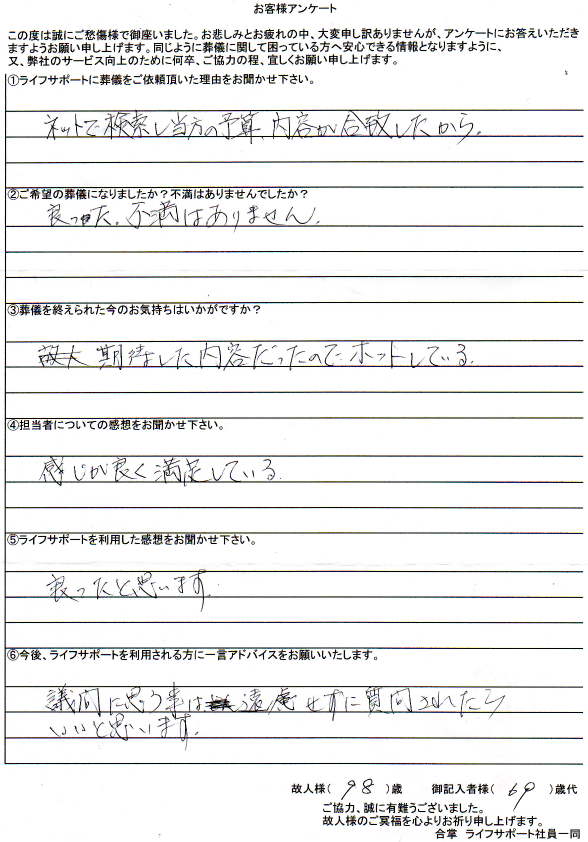 お客様アンケート
この度は誠にご愁傷様で御座いました。お悲しみとお疲れの中、大変申し訳ありませんが、アンケートにお答えいただき
ますようお願い申し上げます。同じように葬儀に関して困っている方へ安心できる情報となりますように、
又、弊社のサービス向上のために何卒、ご協力の程、宜しくお願い申し上げます。
①ライフサポートに葬儀をご依頼頂いた理由をお聞かせ下さい。
ネットで検索し当方の予算、内容が合致したから。
②ご希望の葬儀になりましたか?不満はありませんでしたか?
良かった。不満はありません。
③葬儀を終えられた今のお気持ちはいかがですか?
期待した内容だったので、ホットしている。
④担当者についての感想をお聞かせ下さい。
感じが良く満足している。
⑤ライフサポートを利用した感想をお聞かせ下さい。
良ったと思います。
⑥今後、ライフサポートを利用される方に一言アドバイスをお願いいたします。
議問に思う事は遠慮せずに質問されたら
いいと思います。
故人様( 98 )歳 御記入者様( 60 )歳代
ご協力、誠に有難うございました。
故人様のご冥福を心よりお祈り申し上げます。
合掌 ライフサポート社員一同